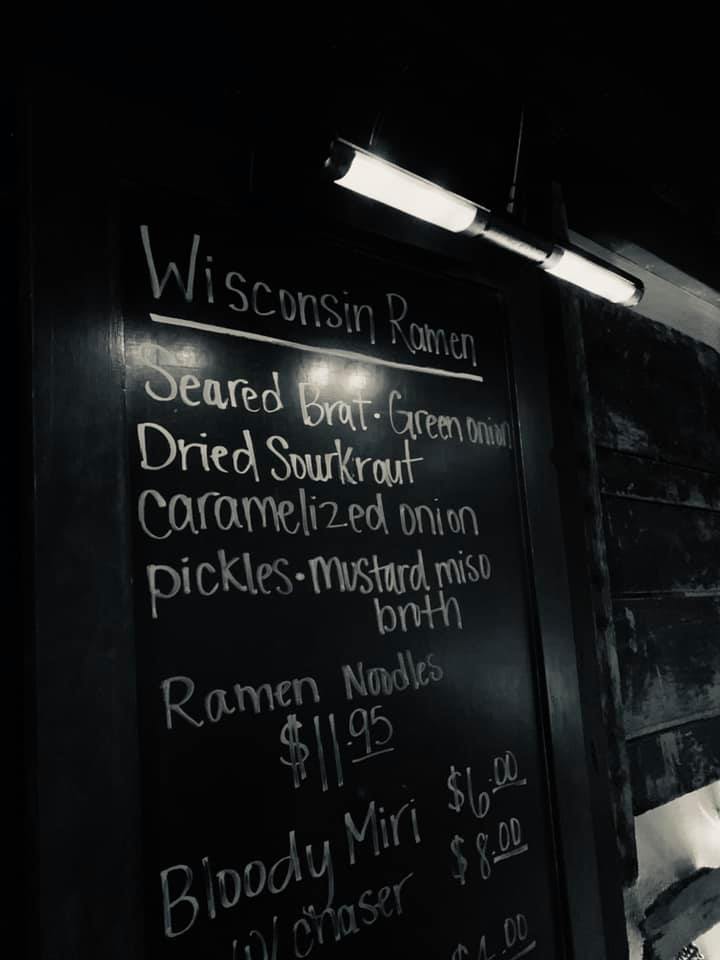 Wisconsin Ramen
Seared Brat · Green onion
Dried Sourkraut
Caramelized onion
pickles · mustard miso
broth
Ramen Noodles
$11.95
Bloody Miri $6.00
W/ chaser $8.00
$4.00